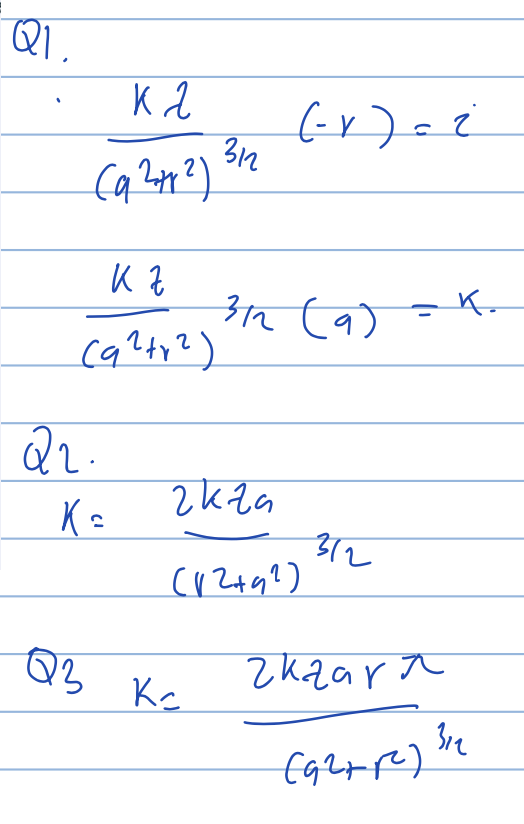 Q1.
K z / (a²+r²)^3/2 (-r) = i
K z / (a²+r²)^3/2 (a) = K.
Q2.
K = 2kza / (r²+a²)^3/2
Q3 K = 2kzar π / (a²+r²)^3/2